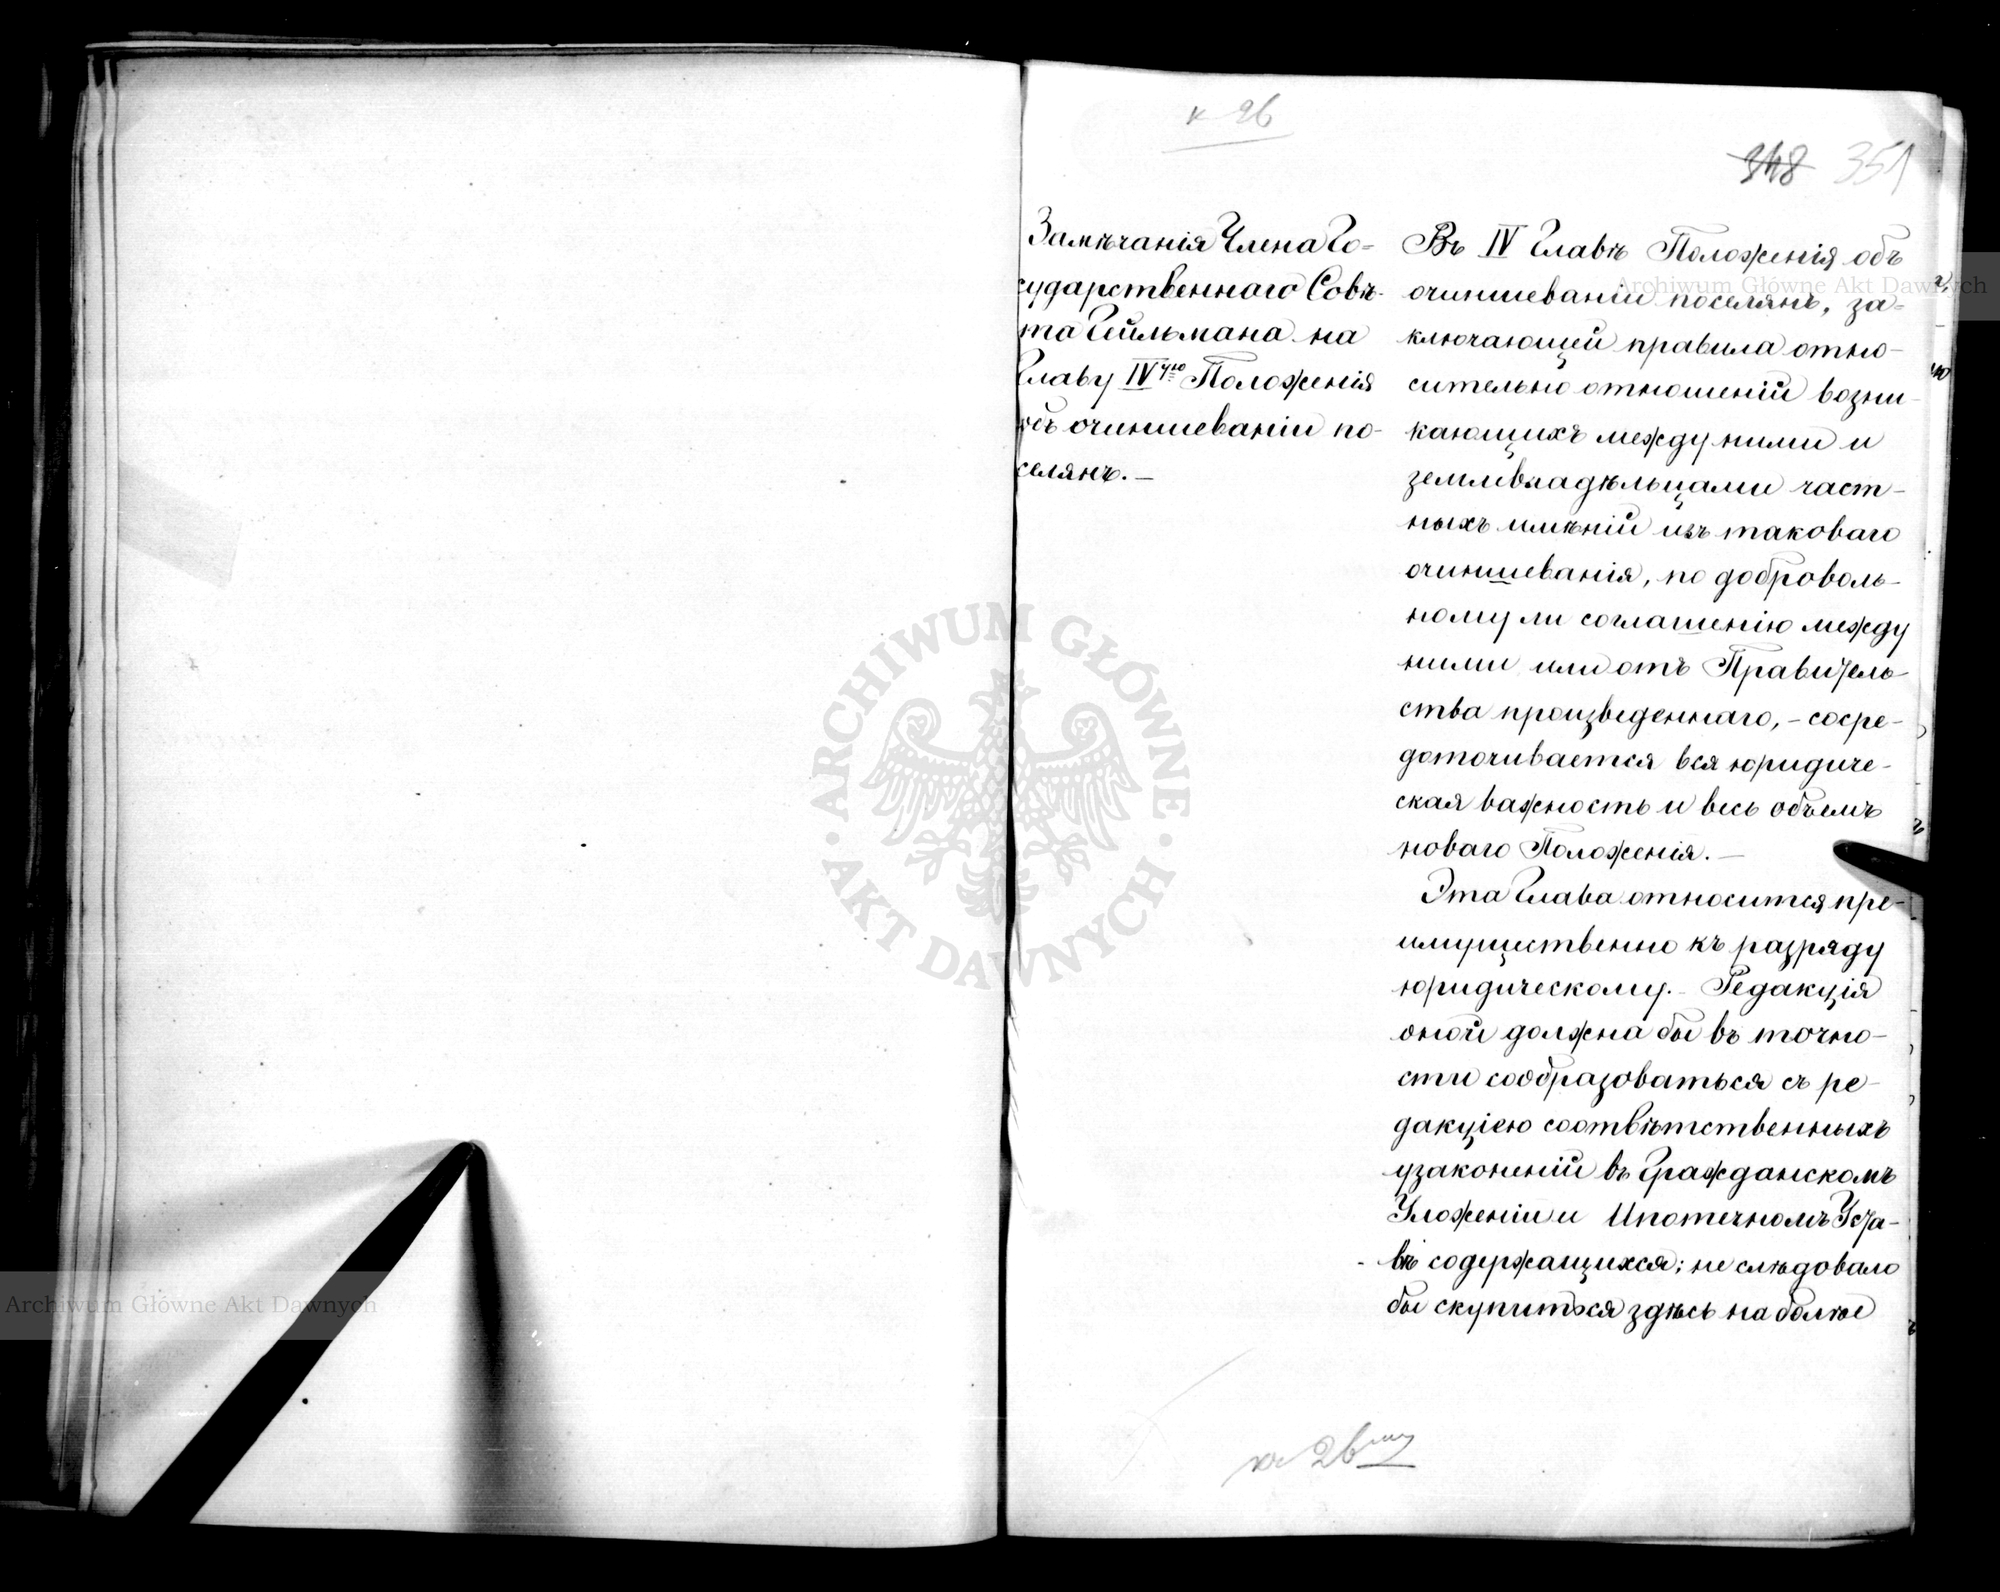 к 26
348 351
Замѣчанія Члена Го-
сударственнаго Совѣ-
та Гейльмана на
Главу IVую Положенія
объ очиншеваніи по-
селянъ.—
Въ IV Главѣ Положенія объ
очиншеваніи поселянъ, за-
ключающей правила отно-
сительно отношеній возни-
кающихъ между ними и
землевладѣльцами част-
ныхъ имѣній изъ таковаго
очиншеванія, по доброволь-
ному ли соглашенію между
ними или отъ Правитель-
ства произведеннаго, - сосре-
доточивается вся юридиче-
ская важность и весь объемъ
новаго Положенія.—
Эта Глава относится пре-
имущественно къ разряду
юридическому.- Редакція
оной должна бы въ точно-
сти сообразоваться съ ре-
дакціею соотвѣтственныхъ
узаконеній въ Гражданскомъ
Уложеніи и Ипотечномъ Уста-
вѣ содержащихся; не слѣдовало
бы скупиться здѣсь на болѣе
къ 26му
Archiwum Główne Akt Dawnych
Archiwum Główne Akt Dawnych
ARCHIWUM GŁÓWNE • AKT DAWNYCH •